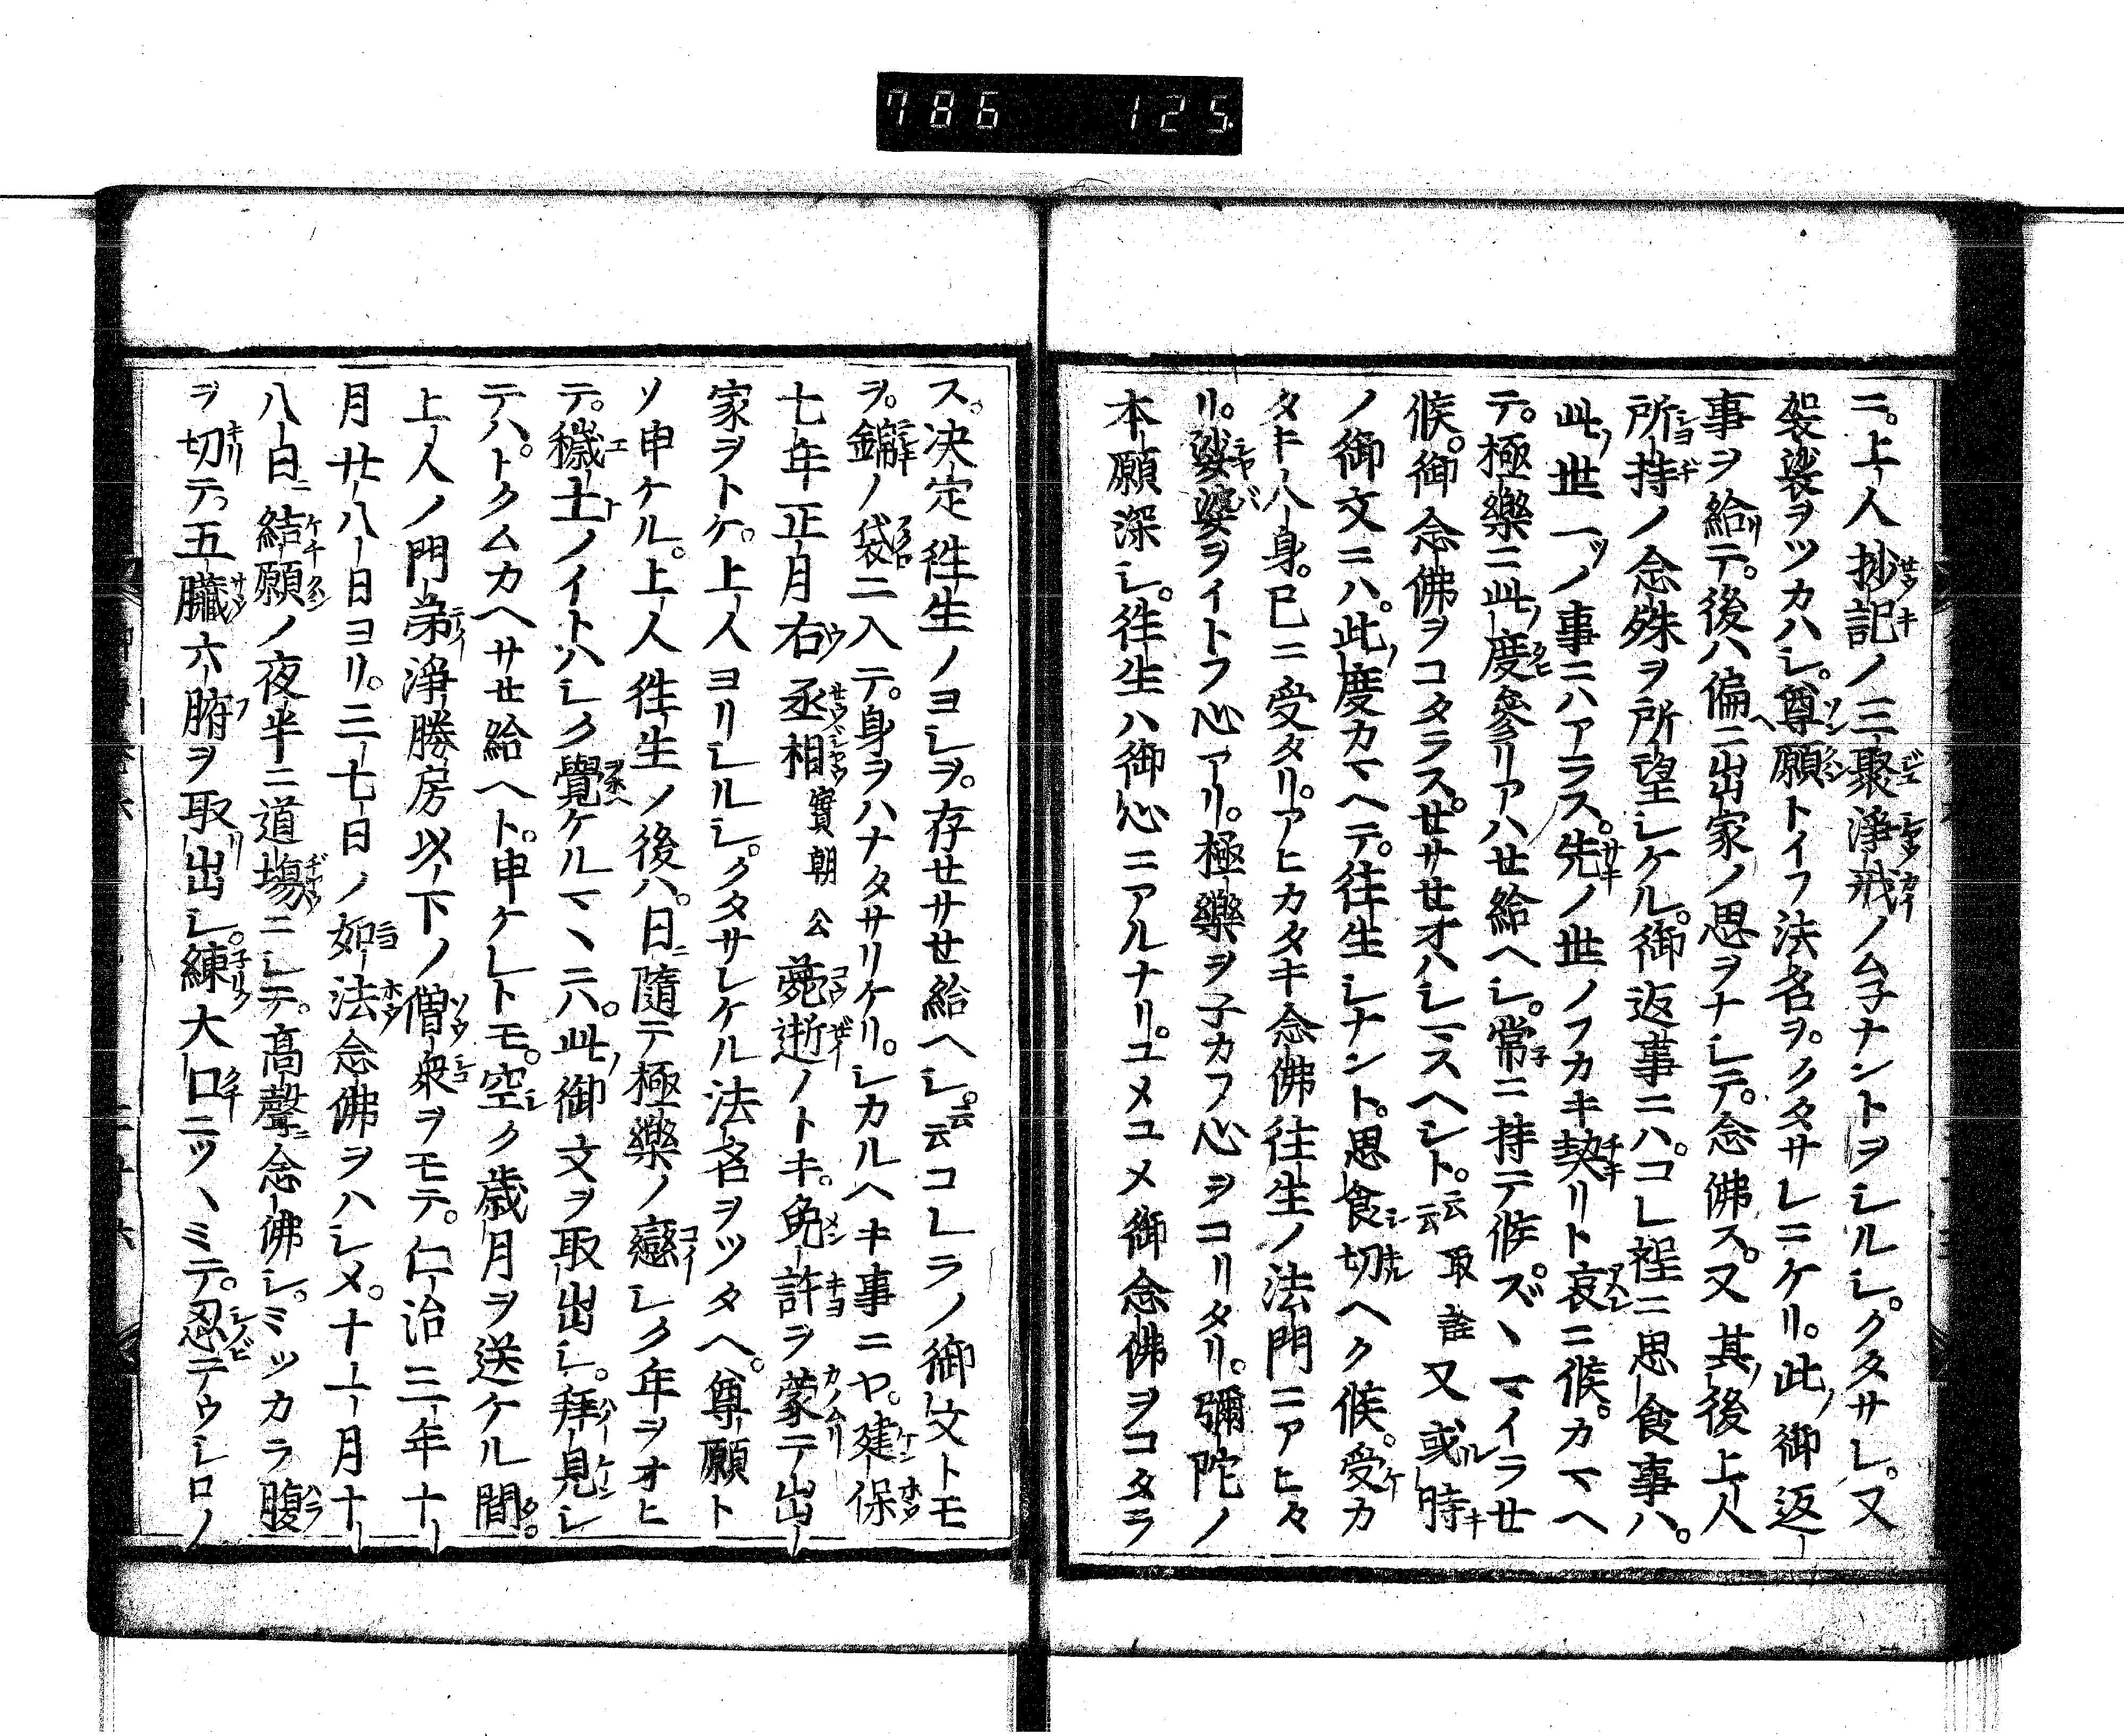 786 125
ニ。上人抄記ノ三聚淨戒ノムネナントヲシルシ。クタサレ。又
袈裟ヲツカハシ。尊願トイフ法名ヲ。クタサレニケリ。此御返
事ヲ給テ。後ハ偏ニ出家ノ思ヲナシテ。念佛ス。又其後上人
所持ノ念殊ヲ所望シケル。御返事ニハ。コレ程ニ思食事ハ。
此世一ツノ事ニハアラス。先ノ世ノフカキ契リト哀ニ候。カマヘ
テ。極樂ニ此度參リアハせ給ヘシ。常ニ持テ候。ズヽマイラせ
候。御念佛ヲコタラス。せサせオハシマスヘシト。云云取詮又或時
ノ御文ニハ。此度カマヘテ。往生シナント。思食切ヘク候。受カ
タキ人身。已ニ受タリ。アヒカタキ念佛往生ノ法門ニアヒタ
リ。娑婆ヲイトフ心アリ。極樂ヲ子カフ心ヲコリタリ。彌陀ノ
本願深シ。往生ハ御心ニアルナリ。ユメユメ御念佛ヲコタラ
ス。決定往生ノヨシヲ。存せサせ給ヘシ。云云コレラノ御文トモ
ヲ。錦ノ袋ニ入テ。身ヲハナタサリケリ。シカルヘキ事ニヤ。建保
七年正月右丞相實朝公薨逝ノトキ。免許ヲ蒙テ出
家ヲトケ。上人ヨリシルシ。クタサレケル法名ヲツタヘ。尊願ト
ソ申ケル。上人往生ノ後ハ。日ニ隨テ極樂ノ戀シク年ヲオヒ
テ。穢土ノイトハシク覺ケルマヽニハ。此御文ヲ取出シ。拜見シ
テハ。トクムカヘサせ給ヘト。申ケレトモ。空ク歳月ヲ送ケル間。
上人ノ門弟淨勝房以下ノ僧衆ヲモテ。仁治三年十
月廿八日ヨリ。三七日ノ如法念佛ヲハシメ。十一月十
八日結願ノ夜半ニ道場ニシテ。高聲念佛シ。ミツカラ腹
ヲ切テ。五臟六腑ヲ取出シ。練大口ニツヽミテ。忍テウシロノ